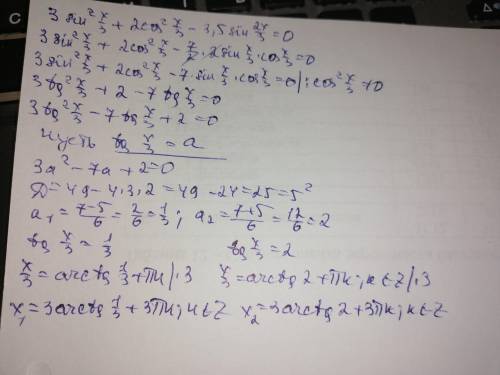 3 sin² x/3 + 2cos² x/3 - 3,5 sin 2x/3 = 0
3 sin² x/3 + 2cos² x/3 - 7/2 · 2 sin x/3 · cos x/3 = 0
3 sin² x/3 + 2cos² x/3 - 7 · sin x/3 · cos x/3 = 0 | : cos² x/3 ≠ 0
3 tg² x/3 + 2 - 7 tg x/3 = 0
3 tg² x/3 - 7 tg x/3 + 2 = 0
Пусть tg x/3 = a
3a² - 7a + 2 = 0
D = 49 - 4·3·2 = 49 - 24 = 25 = 5²
a₁ = (7-5)/6 = 2/6 = 1/3 ; a₂ = (7+5)/6 = 12/6 = 2
tg x/3 = 1/3 tg x/3 = 2
x/3 = arctg 1/3 + πn |·3 x/3 = arctg 2 + πn; n ∈ Z |·3
x₁ = 3 arctg 1/3 + 3πn; n ∈ Z x₂ = 3 arctg 2 + 3πn; n ∈ Z